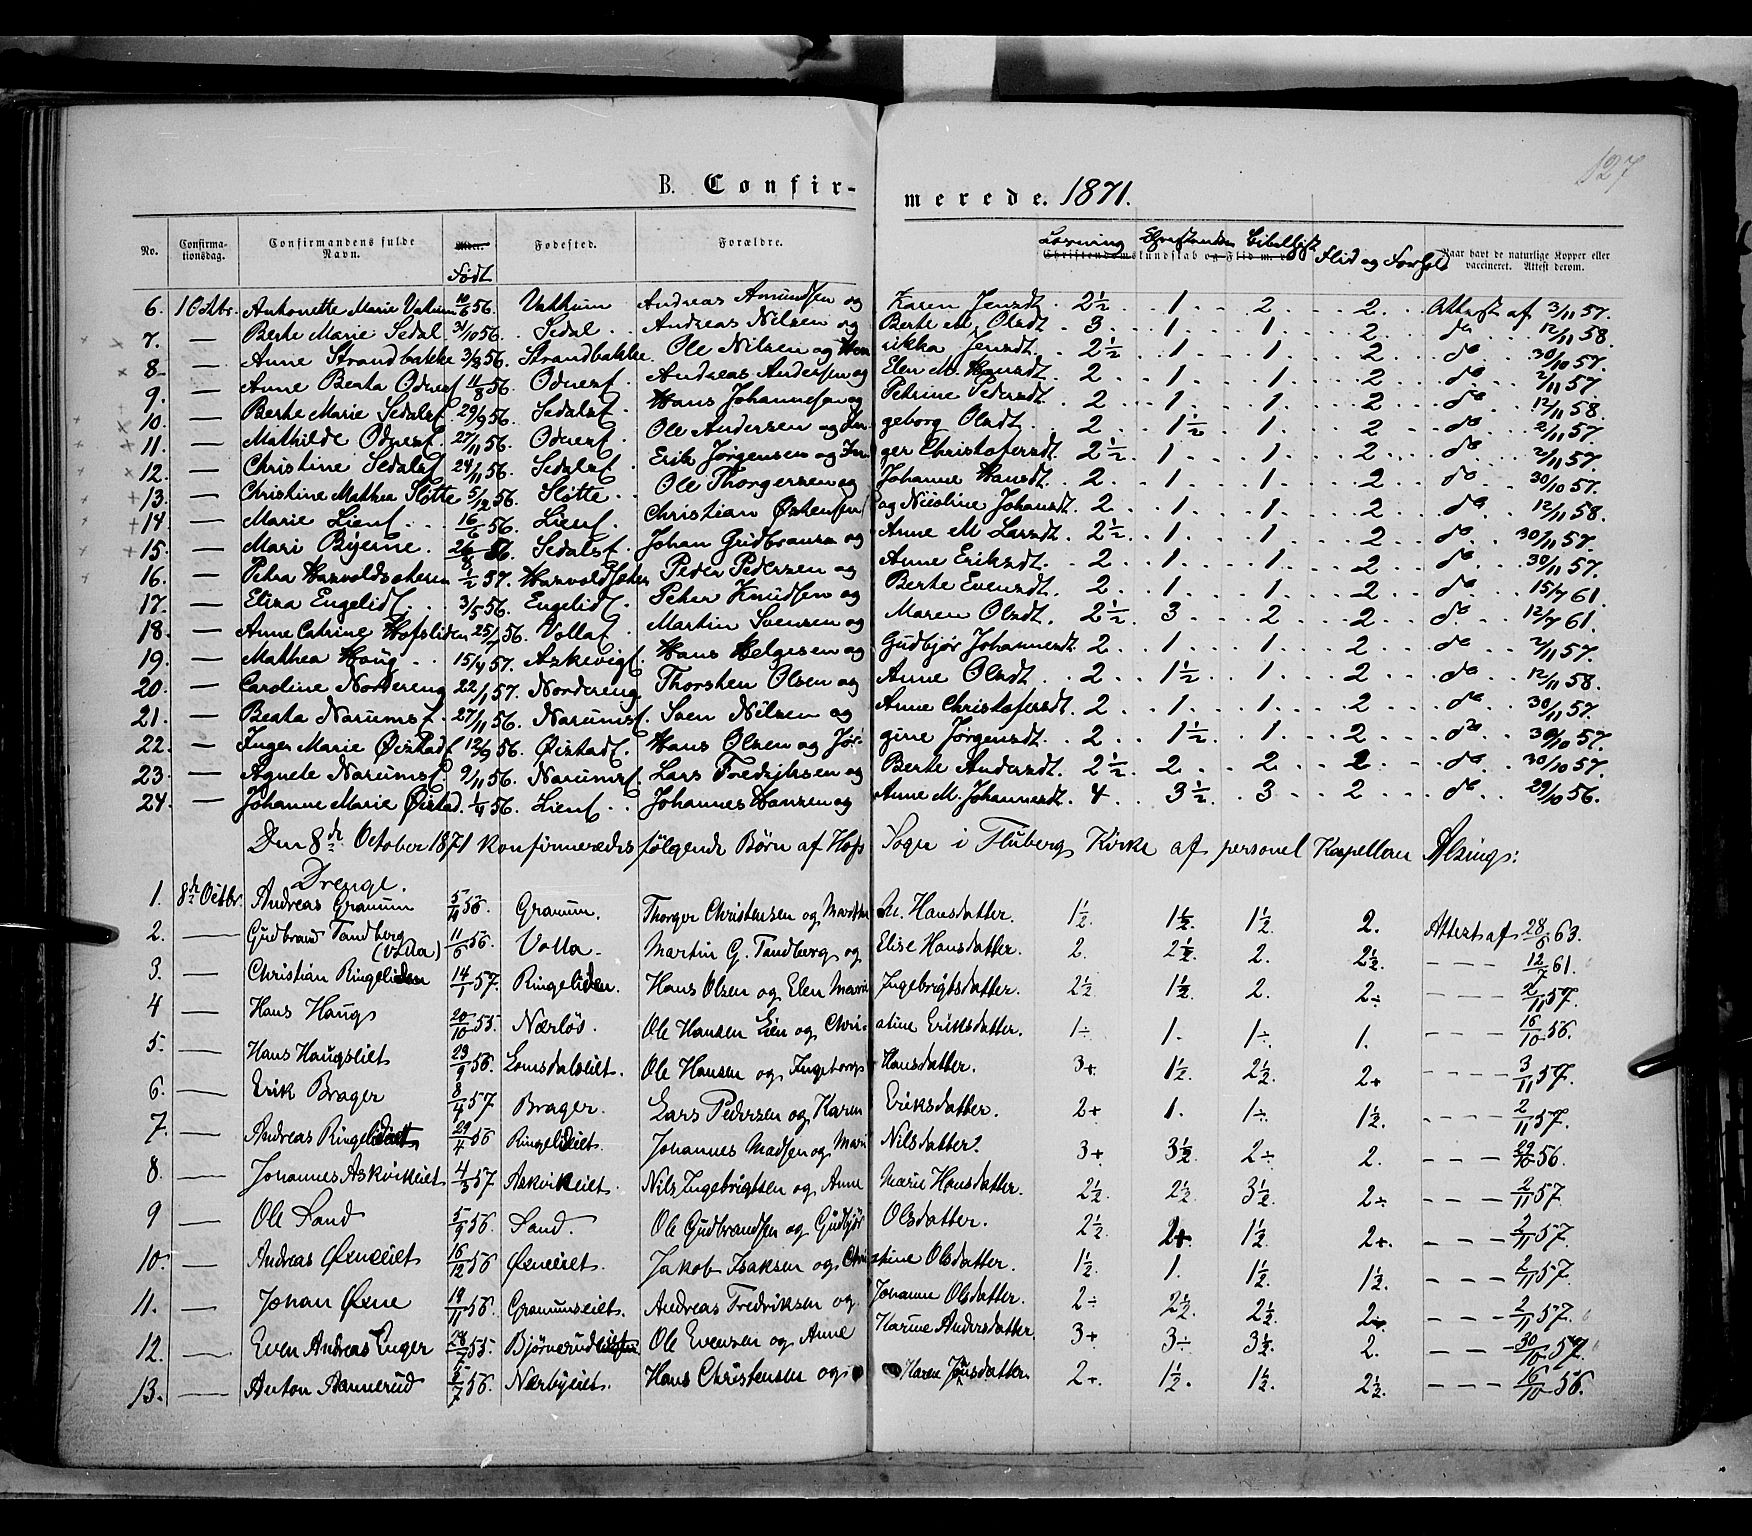 127
B. Confirmerede. 1871.
No. Confirmationsdag. Confirmandens fulde Navn. Alder. Født Fodested. Forældre. Christendomskundskab og Flid m. v. Læsning Bibelhist Flid og Forhold Naar havt de naturlige Kopper eller vaccineret. Attest derom.
6. 1 Octbr. Antonette Marie 10/6 56. Andreas Amundsen og Karen Jensdt. 2½ 1 2 2. Attest af 3/11 57.
7. — Berte Marie Sedal 31/10 56. Sedal. Andreas Nilsen og Berte M. Olsdt. 3. 1 1 2. do 12/11 58.
8. — Anne Strandbakke 3/8 56. Strandbakke. Ole Nilsen og Henrikka Jensdt. 2½ 1 1 2 do 30/10 57.
9. — Anne Beata Odnesf. 11/8 56. Odnesf. Andreas Andersen og Elen M. Hansdt. 2 1 1 2 do 2/11 57
10. — Berte Marie Sedalsf. 29/9 56. Sedalsf. Hans Johannesen og Petrine Pedersdt. 2 1 1 2 do 12/11 58.
11. — Mathilde Odnesf. 27/11 56. Odnesf. Ole Andersen og Ingeborg Olsdt. 2 1½ 1 2 do 2/11 57.
12. — Christine Sedalsf 24/11 56. Sedalsf. Erik Jørgensen og Inger Christofersdt. 2½ 1 1 2 do 2/11 57.
13. — Christine Mathea Sløtte 5/12 56. Sløtte. Ole Thorgersen og Johanne Hansdt. 2. 1 1 2 do 30/10 57.
14. — Marie Lienf. 16/6 56. Lienf. Christian Østensen og Nicoline Johansdt. 2 1 1 2. do 12/11 58.
15. — Mari Bjerne. 26/8 56. Sedalsf. Johan Gudbransen og Anne M Larsdt. 2½ 1 1 2 do 30/11 57.
16. — Petra Harvoldsæteren 2/2 57. Harvoldsæter Peder Pedersen og Anne Eriksdt. 2 1 1 2 do 30/11 57.
17. — Elisa Engelidf. 3/5 56. Engelidf. Peter Knudsen og Berte Evensdt. 2. 1 1 2 do 15/7 61.
18. — Anne Catrine Hofsliden 25/7 56. Vollaf. Martin Svensen og Maren Olsdt. 2½ 3 2 2 do 12/7 61.
19. — Mathea Haug 15/4 57. Askevigf. Hans Helgesen og Gudbjør Johannesdt. 2 1 1 2 do 2/11 57.
20. — Caroline Nordereng 22/1 57. Nordereng Thorsten Olsen og Anne Olsdt. 2 1½ 1 2 do 12/11 58.
21. — Beata Narumsf. 27/11 56. Narumsf. Sven Nilsen og Anne Christofersdt. 2 1 1 2 do 30/11 57.
22. — Inger Marie Øistadf 12/9 56. Øistadf. Hans Olsen og Jørgine Jørgensdt. 2 1½ 1 2 do 30/10 57.
23. — Agnete Narumsf. 9/11 56. Narumsf. Lars Fredriksen og Berte Andersdt. 2½ 2 2 2 do 30/10 57.
24. — Johanne Marie Øistad. 1/4 56. Lienf. Johannes Hansen og Anne M. Johannesdt. 4 3½ 3 2 do 29/10 56.
Den 8de October 1871 konfirmeredes følgende Børn af Hofs Sogn i Fluberg Kirke af personel Kapellan Alsing:
Drenge.
1. 8de Octbr. Andreas Granum 5/4 56. Granum. Thorger Christensen og M. Hansdatter. 1½ 1½ 1½ 2. Attest af 28/6 63.
2. — Gudbrand Tandberg (Volla) 11/6 56. Volla. Martin G. Tandberg og Elise Hansdatter. 2. 2½ 2. 2½. — — — 12/7 61.
3. — Christian Ringeliden 14/1 57. Ringeliden. Hans Olsen og Elen Marie Ingebrigtsdatter. 2½ 1½ 2. 2÷ — — — 2/11 57.
4 — Hans Haugs 20/10 55. Nærløs. Ole Hansen Lien og Christine Eriksdatter. 1÷ 1. 1÷ 1. — — — 16/10 56.
5. — Hans Haugseiet 23/9 56. Lomsdalseiet. Ole Hansen og Ingeborg Hansdatter. 3+ 1½. 2½. 2+ — — — 3/11 57.
6. — Erik Brager 8/4 57 Brager. Lars Pedersen og Karen Eriksdatter. 2+ 1. 1÷ 1½. — — — 2/11 57.
7. — Andreas Ringelideiet 29/4 56 Ringelideiet Johannes Madsen og Mari Nilsdatter. 3+ 3½. 2÷ 2. — — — 29/10 56.
8. — Johannes Askvikeiet 4/3 57 Askvikeiet. Nils Ingebrigtsen og Anne Marie Hansdatter. 2½ 2½. 3½. 2÷ — — — 2/11 57.
9 — Ole Sand 5/9 56. Sand. Ole Gudbrandsen og Gudbjør Olsdatter. 2½. 2+. 1½. 2+. — — — 2/11 57.
10. — Andreas Øxneeiet 16/12 56 Øxneeiet. Jakob Isaksen og Christine Olsdatter. 1½. 1. 1½. 1½. — — — 2/11 57.
11. — Johan Øxne 19/11 56. Granumseiet. Andreas Fredriksen og Johanne Olsdatter. 2÷ 2½. 2½. 2÷. — — — 2/11 57.
12. — Even Andreas Enger 28/7 55. Ole Evensen og Anne Karine Andersdatter. 3+ 3÷ 3½. 2. — — — 30/10 57.
13. — Anton Aannerud 5/7 56. Nærbyeiet. Hans Christensen og Karen Jensdatter. 2+. 1½. 1½. 2½. — — — 16/10 56.